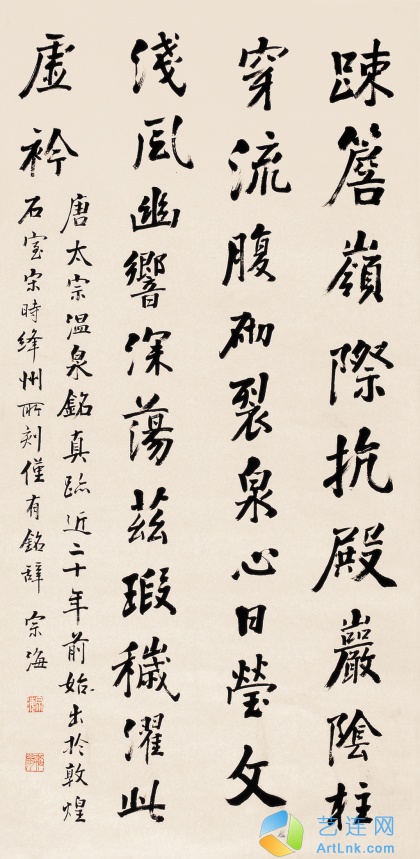 踈簷嶺際抗殿巖陰柱
穿流腹砌裂泉心日瑩文
淺風幽響深蕩茲瑕穢濯此
虛衿
唐太宗溫泉銘真跡近二十年前始出於敦煌
石室宋時絳州所刻僅有銘辭 宗海
艺连网
ArtLnk.com